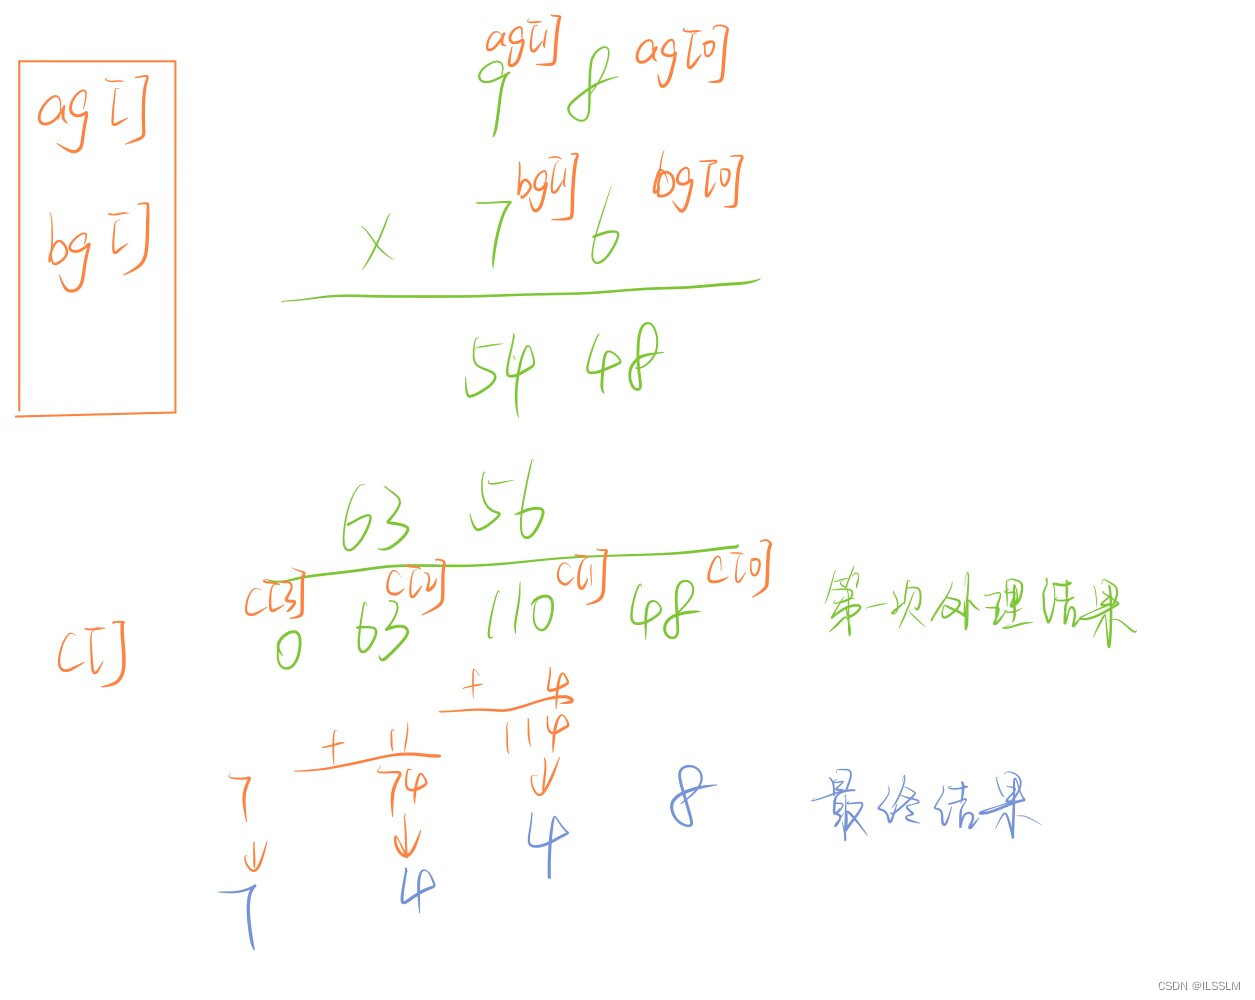 ag[1] ag[0]
9 8
ag[]
bg[1] bg[0]
× 7 6
bg[]
54 48
63 56
c[3] c[2] c[1] c[0]
0 63 110 48 第一次处理结果
c[]
+ 4
114
+ 11
7 74
8 最终结果
4
7 4
CSDN @ILSSLM